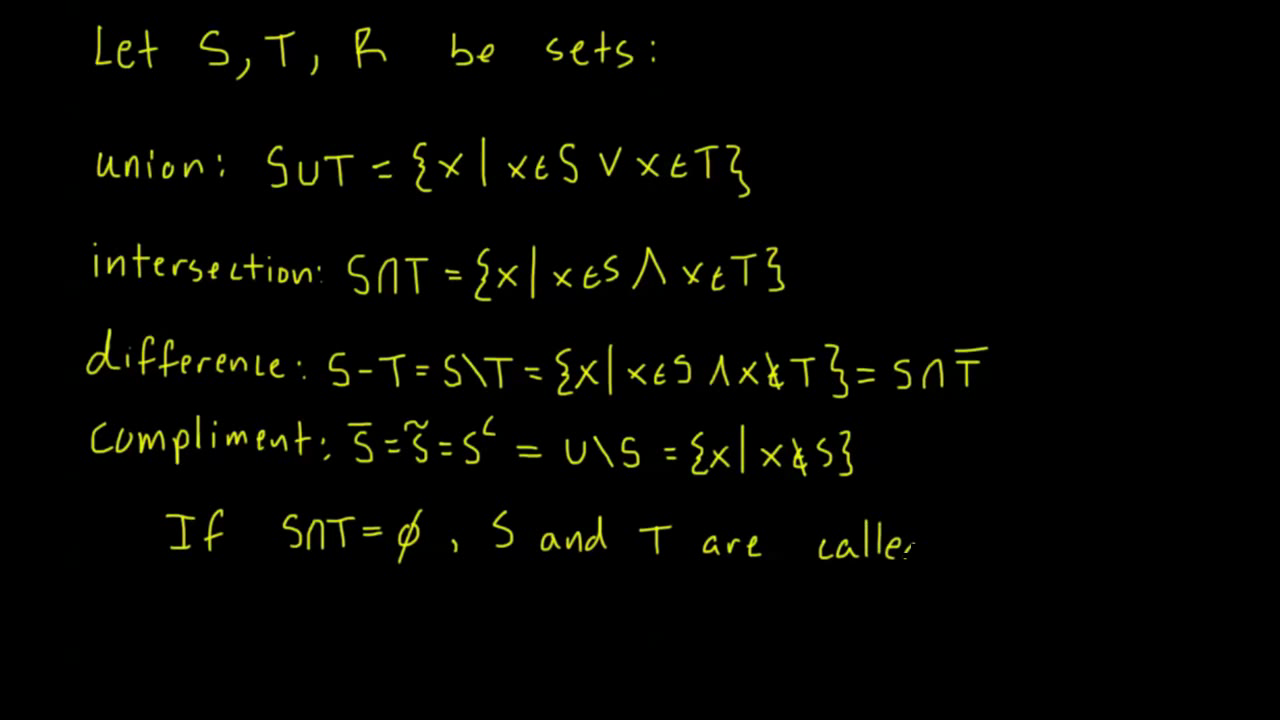 Let S, T, R be sets:
union: S∪T = {x | x∈S ∨ x∈T}
intersection: S∩T = {x | x∈S ∧ x∈T}
difference: S-T = S\T = {x | x∈S ∧ x∉T} = S∩T̅
compliment: S̅ = S̃ = Sᶜ = U\S = {x | x∉S}
If S∩T = ∅, S and T are calle